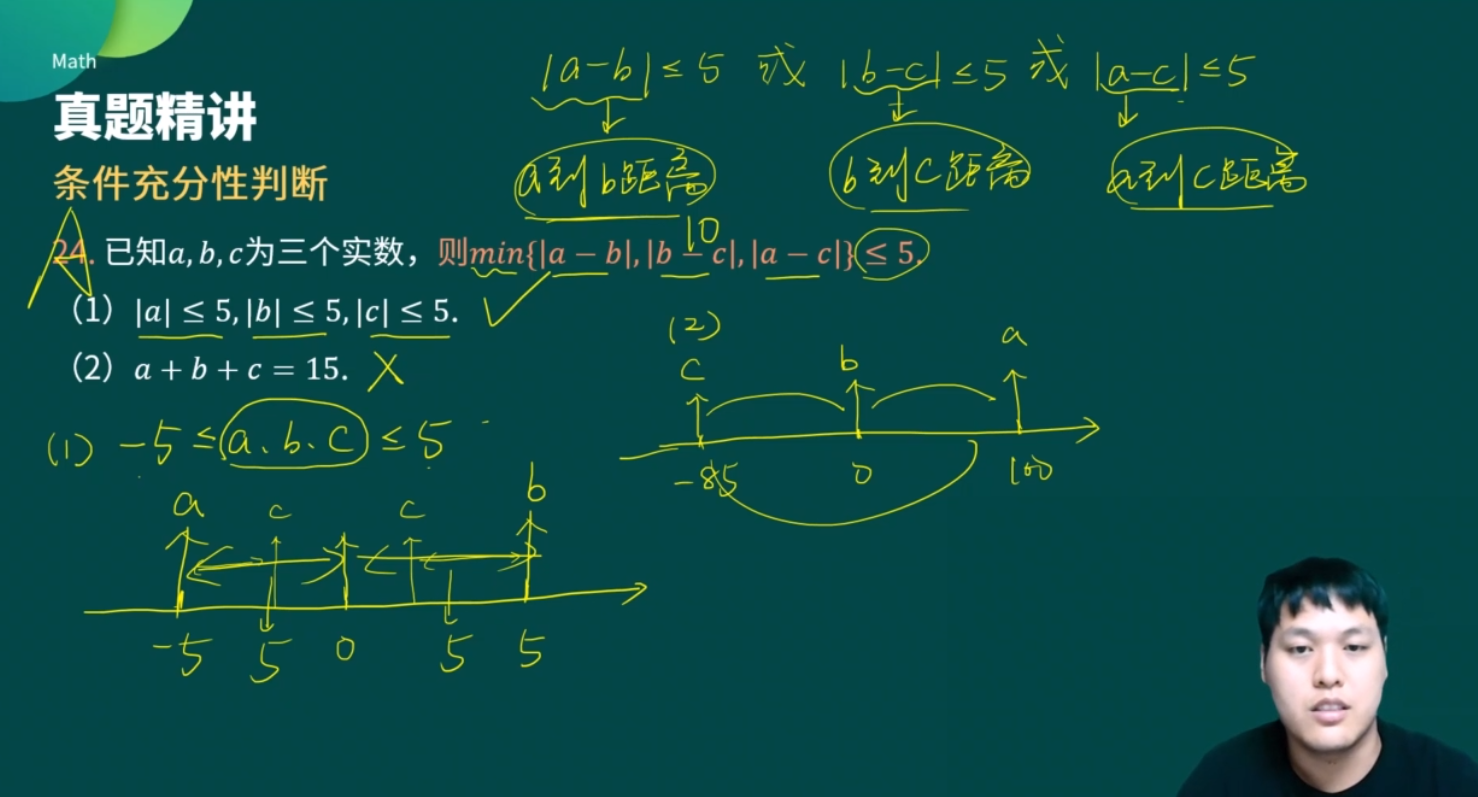 Math
|a-b|≤5 或 |b-c|≤5 或 |a-c|≤5
真题精讲
a到b距离 b到c距离 a到c距离
条件充分性判断
A
10
24. 已知a,b,c为三个实数，则min{|a − b|,|b − c|,|a − c|} ≤ 5.
（1）|a| ≤ 5,|b| ≤ 5,|c| ≤ 5. ✓
（2）a + b + c = 15. X
(2)
c b a
-85 0 100
(1) -5≤a、b、c≤5
a c c b
-5 5 0 5 5